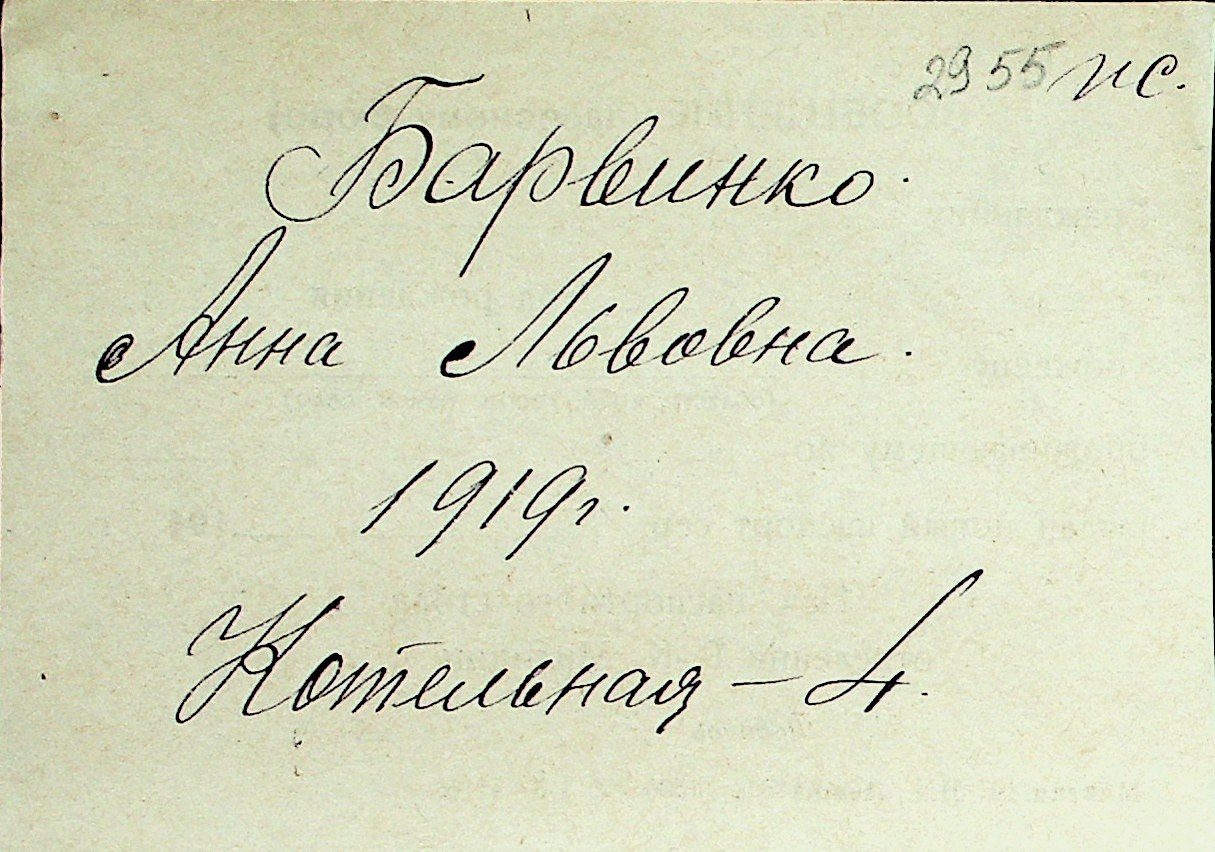 2955 пс.
Барвинко.
Анна Львовна.
1919г.
Котельная – 4.